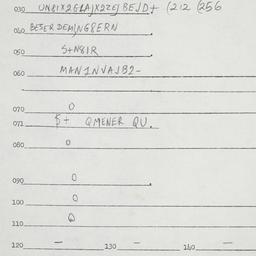 030 UN81X2G1AJX2ZEJBEJD+ (212 (256
040 BESER DEMJNG8ERN
050 S+N8IR
060 MANINVAJB2-
070 0
071 S+ QMENER QU.
080 0
090 0
100 0
110 0
120 - 130 - 140 -